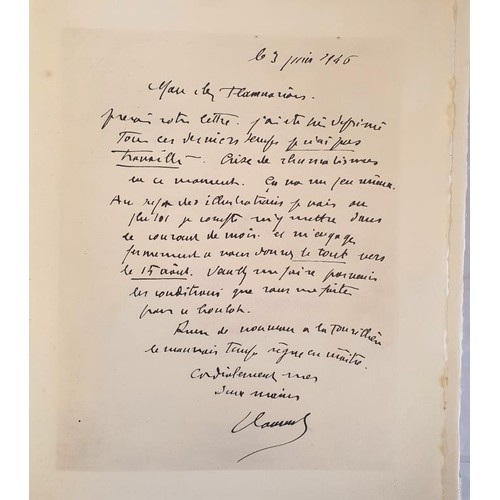 le 3 juin 1946
Mon cher Flammarion.
votre lettre. j'ai été très déprimé
Tous ces derniers temps je n'ai pas
travaillé. Crise de rhumatismes
en ce moment. Ça va un peu mieux.
Au sujet des illustrations je vais au
je compte m'y mettre dans
le courant de mois. et m'engage
fermement a vous donner le tout vers
le 15 août. me faire parvenir
les conditions que vous me faites
pour ce boulot.
Rien de nouveau a la Tourillière
le mauvais temps règne en maître.
Cordialement mes
deux mains